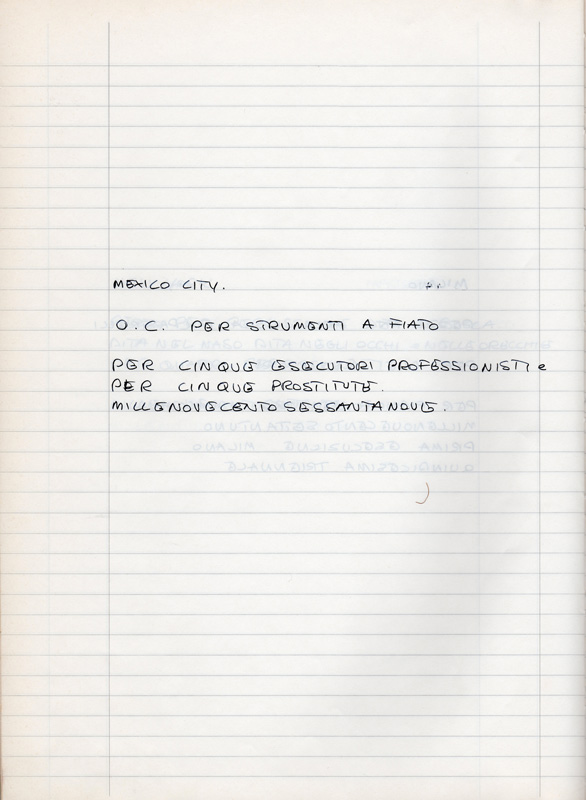 MEXICO CITY.
O.C. PER STRUMENTI A FIATO
PER CINQUE ESECUTORI PROFESSIONISTI e
PER CINQUE PROSTITUTE.
MILLENOVECENTOSESSANTANOVE.